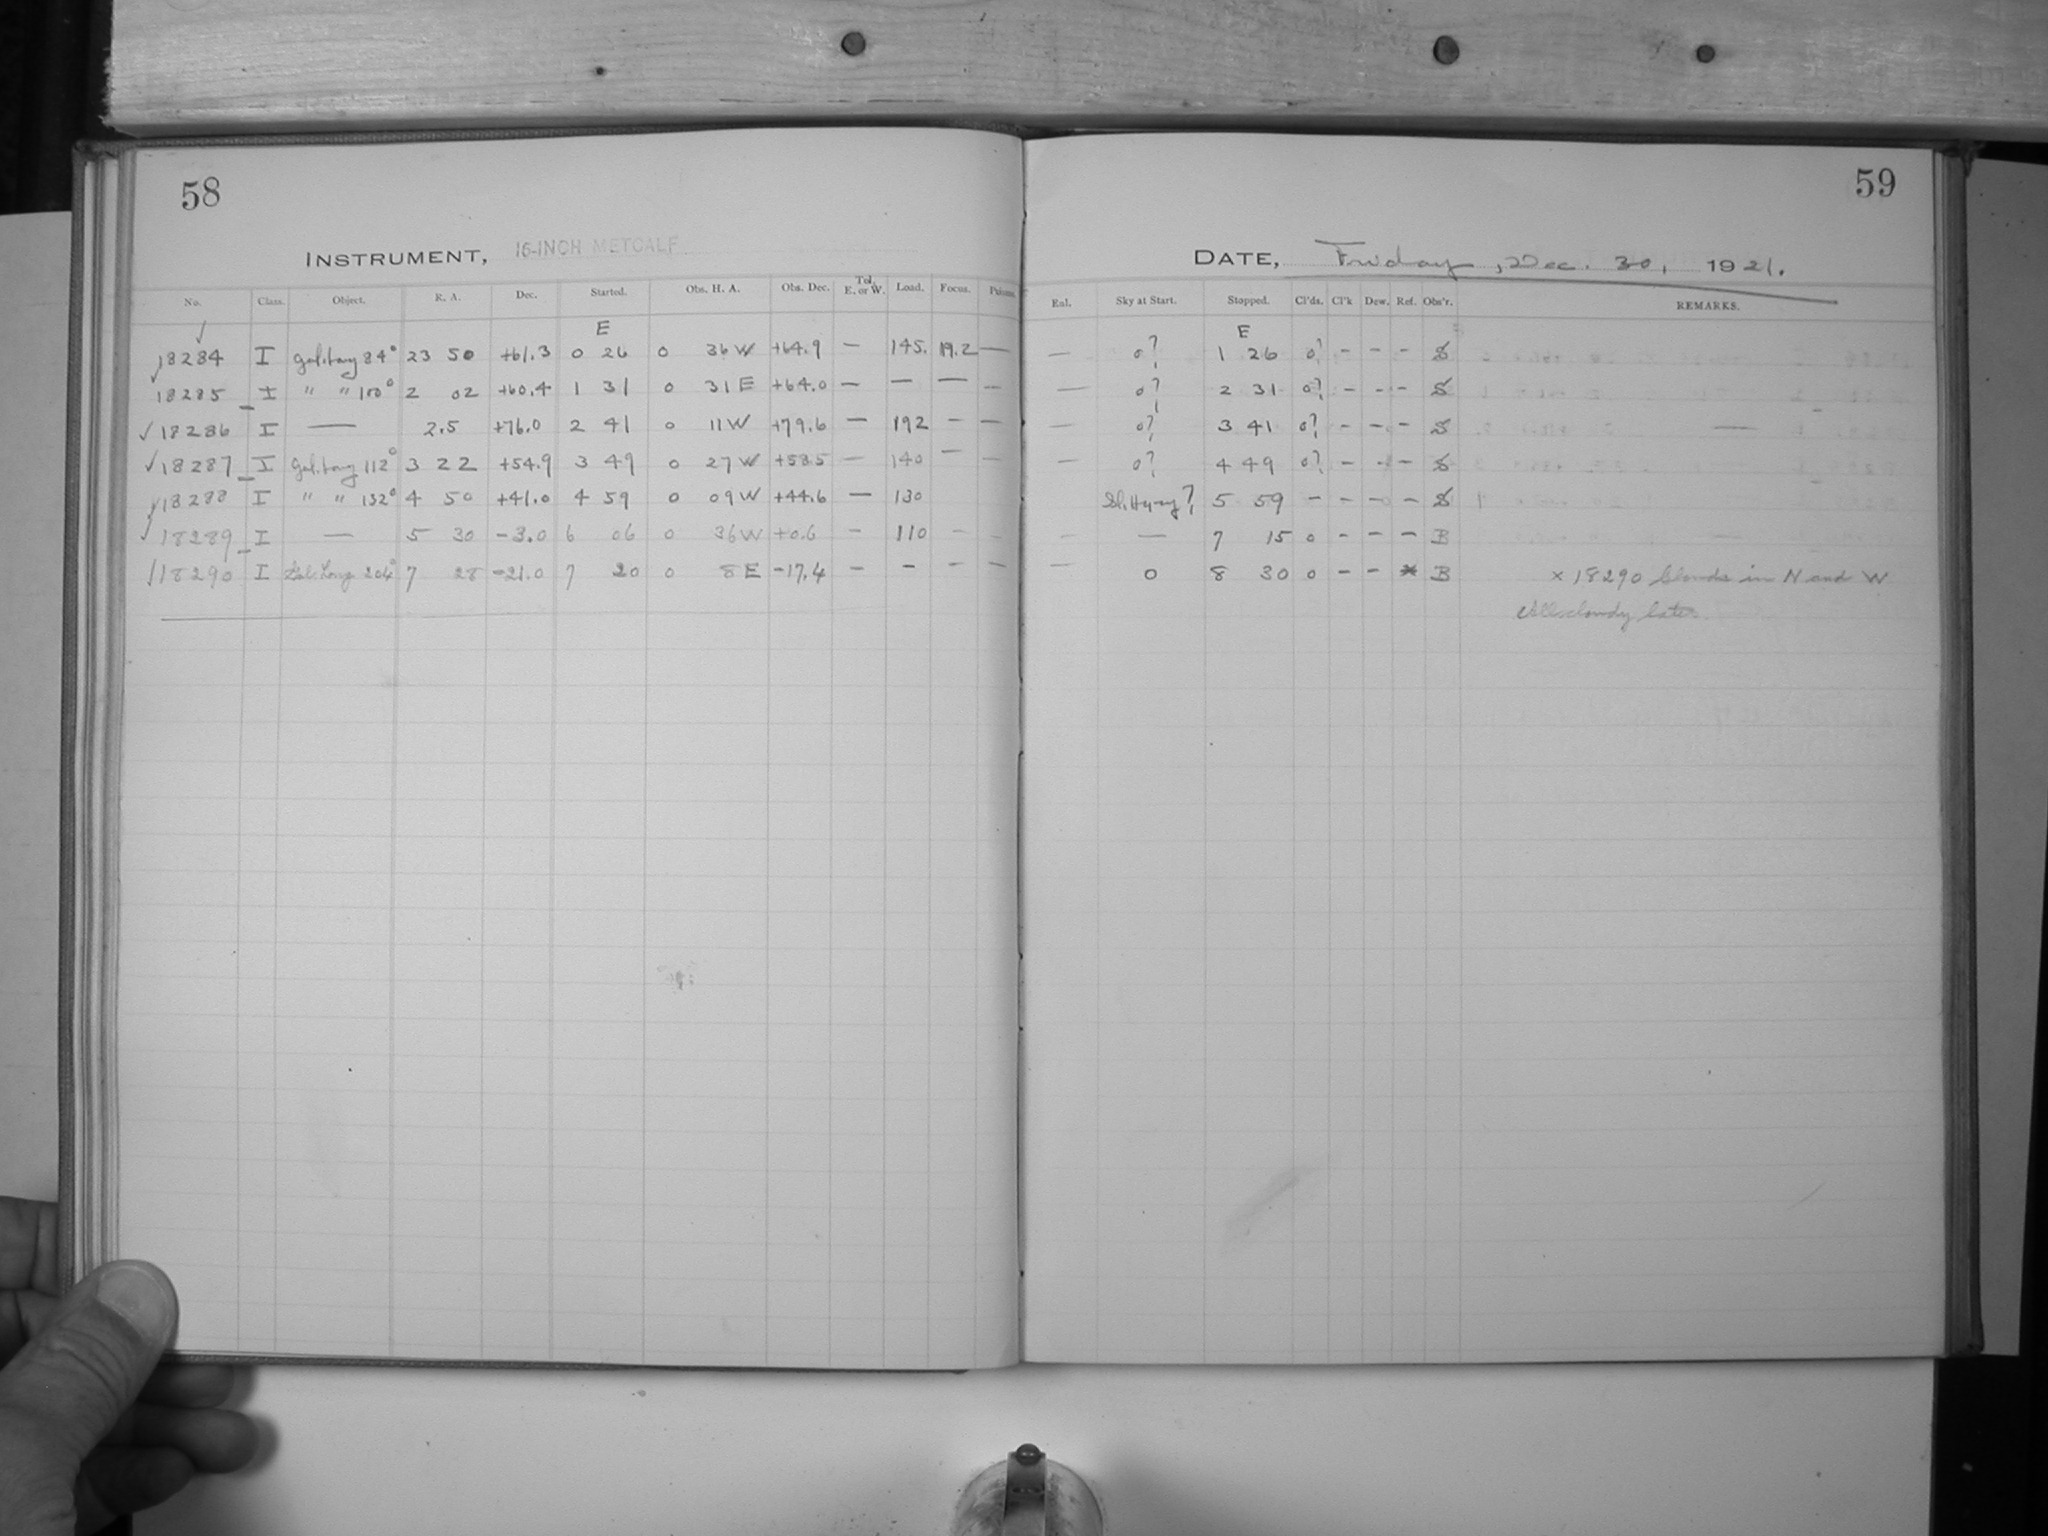 58
59
INSTRUMENT, 16-INCH METCALF
DATE, Friday, Dec. 30, 1921.
No. Class. Object. R. A. Dec. Started. Obs. H. A. Obs. Dec. Tel. E. or W. Load. Focus. Prisms. Eul. Sky at Start. Stopped. Cl'ds. Cl'k Dew. Ref. Obs'r. REMARKS.
E E
18284 I Gal. Long 84° 23 50 +61.3 0 26 0 36 W +64.9 — 145. 19.2 — — 0? 1 26 0? - - - S
18285 I " " 100° 2 02 +60.4 1 31 0 31 E +64.0 — — — — — 0? 2 31 0? - - - S
18286 I — 2.5 +76.0 2 41 0 11 W +79.6 — 192 — — — 0? 3 41 0? - - - S
18287 I Gal. Long 112° 3 22 +54.9 3 49 0 27 W +58.5 — 140 — — — 0? 4 49 0? - - - S
18288 I " " 132° 4 50 +41.0 4 59 0 09 W +44.6 — 130 Sl. Hazy? 5 59 - - - - S
18289 I — 5 30 -3.0 6 06 0 36 W +0.6 - 110 - - - — 7 15 0 - - - B
18290 I Gal. Long 204° 7 28 -21.0 7 20 0 8 E -17.4 - - - - - 0 8 30 0 - - * B × 18290 Clouds in N and W
All cloudy later.